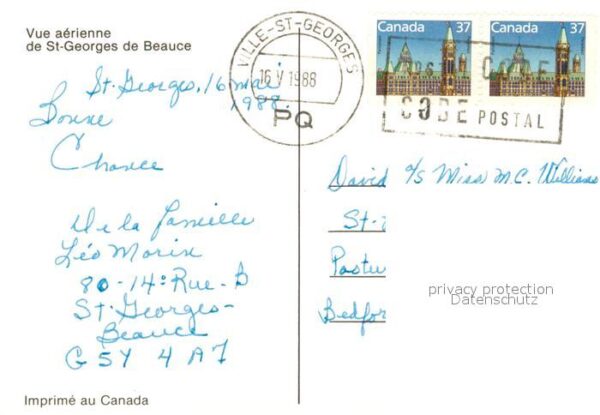 Vue aérienne
de St-Georges de Beauce
St. Georges, 16 mai
1988
Bonne
Chance
De la famille
Léo Morin
80-14e Rue-B
St-Georges-
Beauce
G5Y 4A7
Imprimé au Canada
VILLE-ST-GEORGES
16 V 1988
PQ
Canada 37
Canada 37
CODE
CODE POSTAL
David c/s Miss M.C. Williams
St-
Pastu
Bedfor
privacy protection
Datenschutz